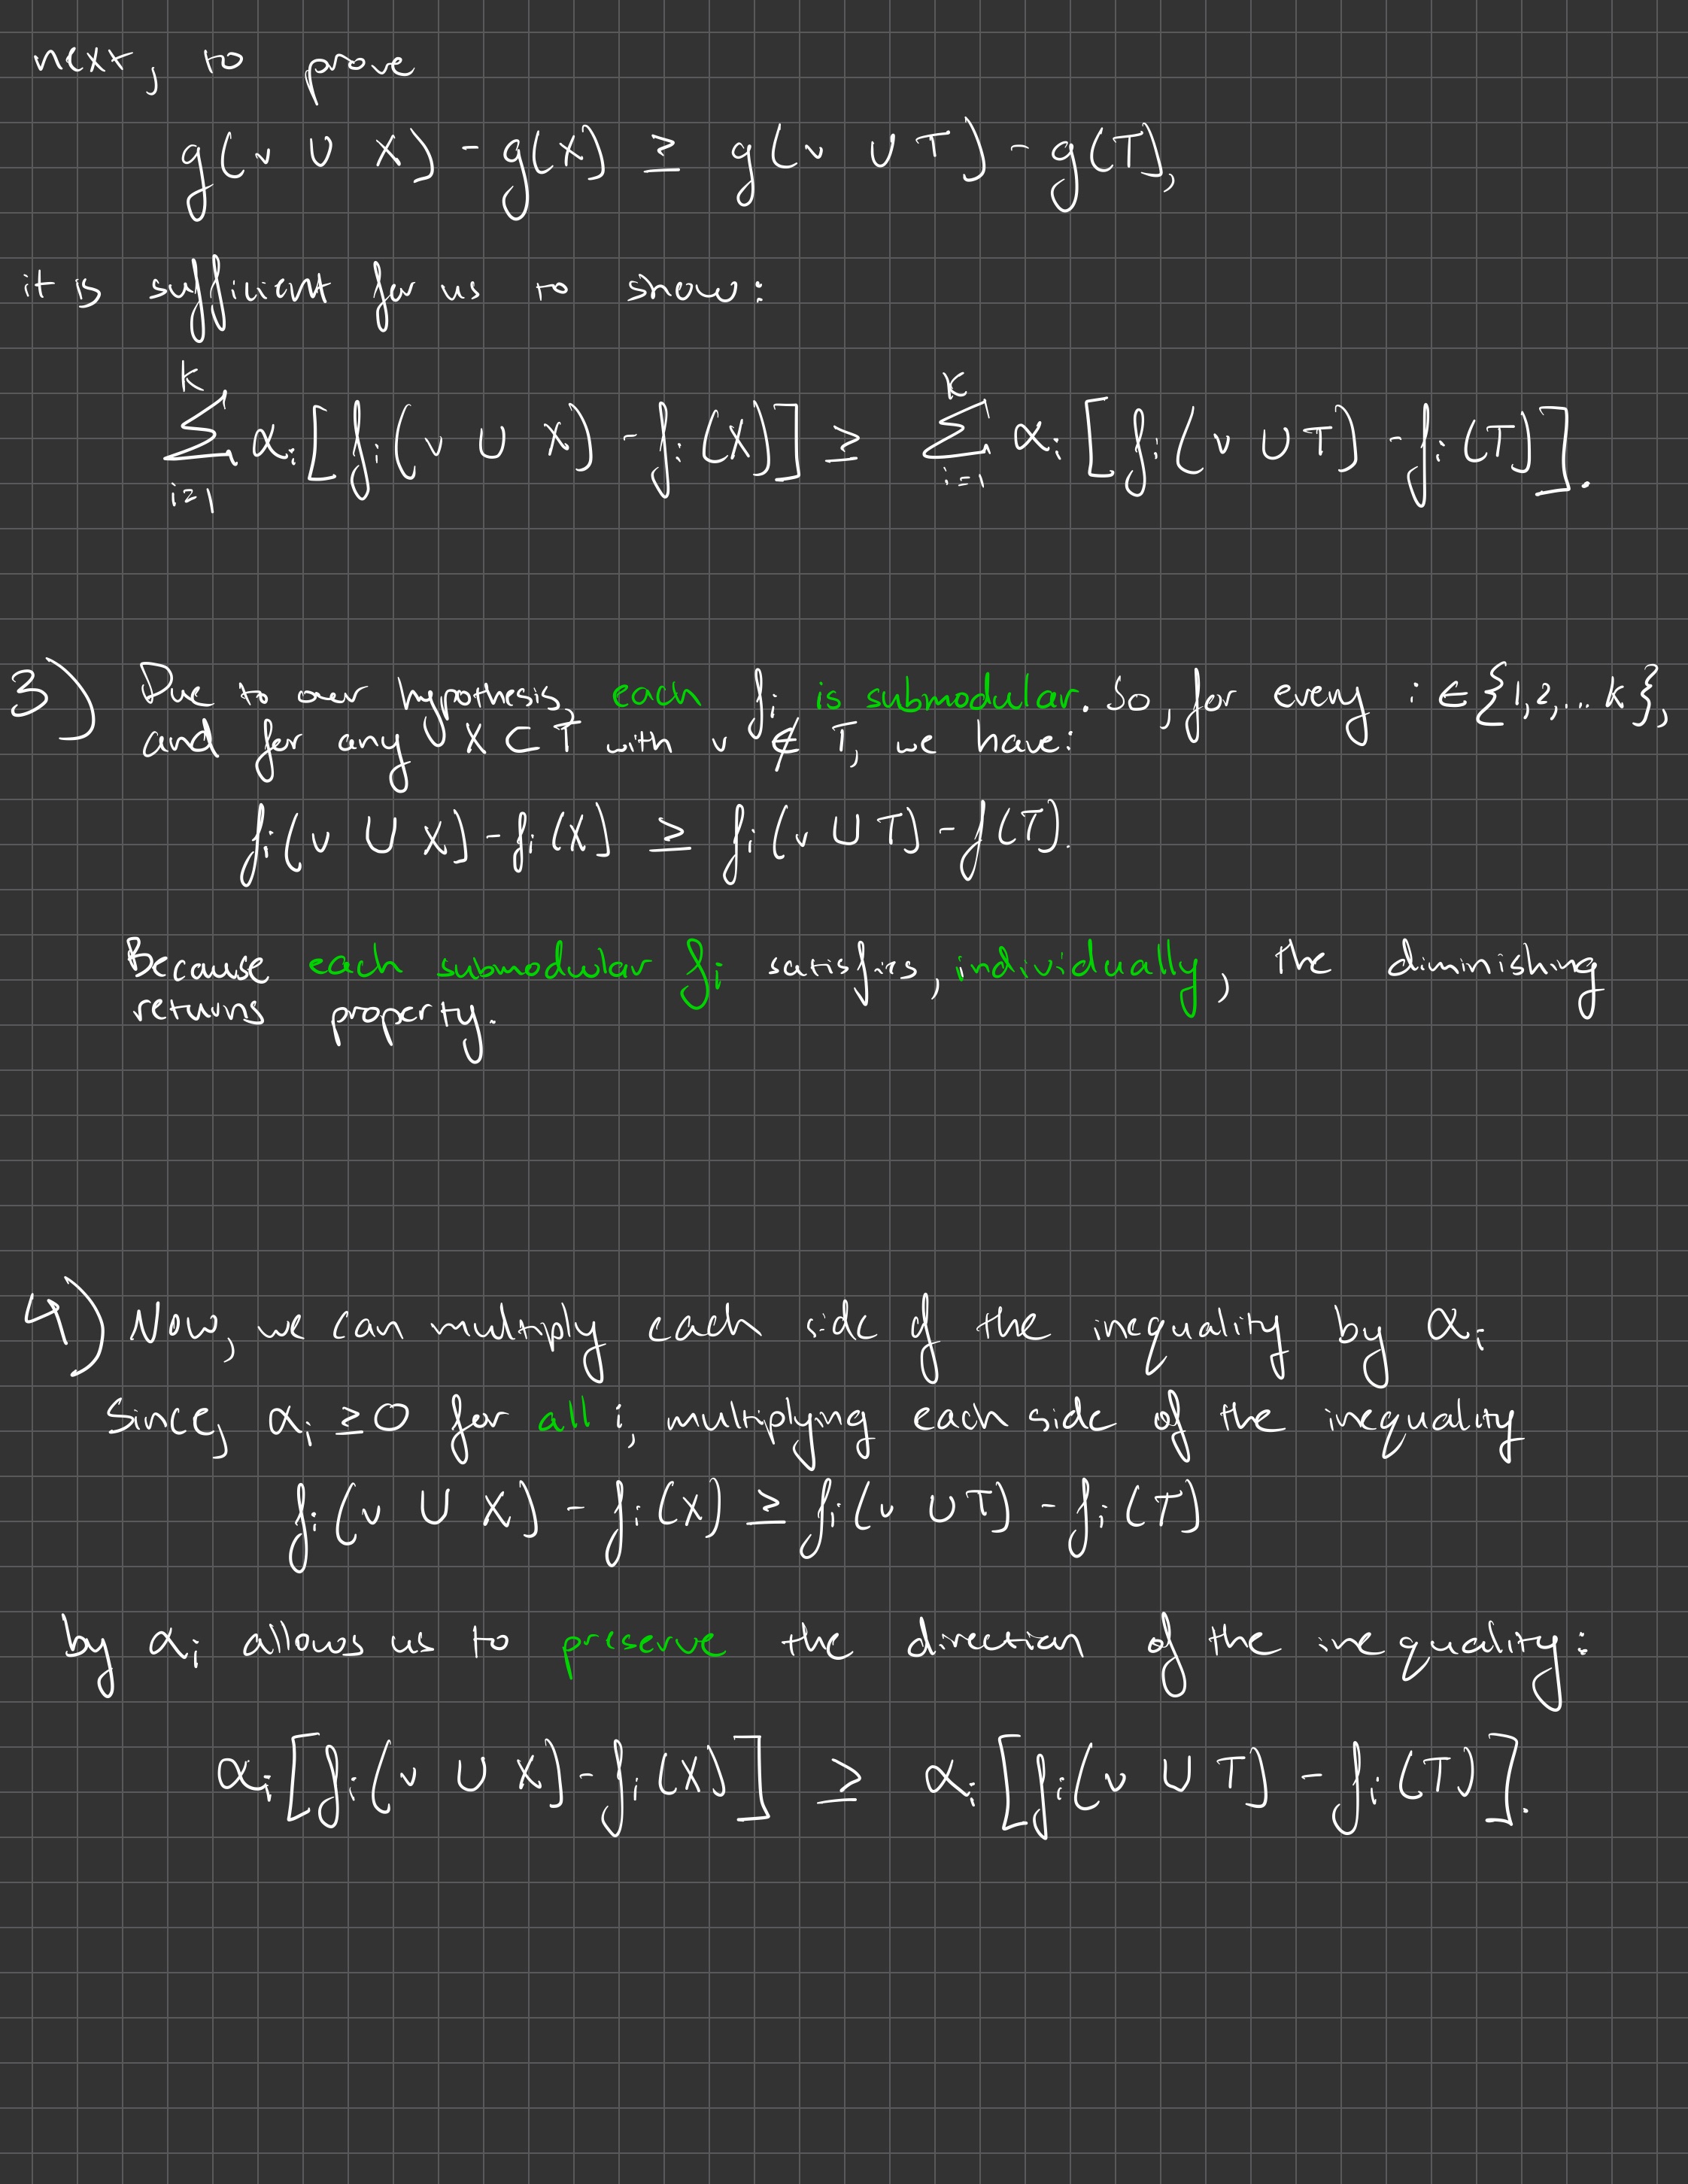 next, to prove
g(v ∪ X) - g(X) ≥ g(v ∪ T) - g(T),
it is sufficient for us to show:
∑_{i=1}^{K} α_i [f_i(v ∪ X) - f_i(X)] ≥ ∑_{i=1}^{K} α_i [f_i(v ∪ T) - f_i(T)].
3) Due to our hypothesis, each f_i is submodular. So, for every i ∈ {1,2,... k},
and for any X ⊂ T with v ∉ T, we have:
f_i(v ∪ X) - f_i(X) ≥ f_i(v ∪ T) - f(T).
Because each submodular f_i satisfies, individually, the diminishing
returns property.
4) Now, we can multiply each side of the inequality by α_i
Since, α_i ≥ 0 for all i, multiplying each side of the inequality
f_i(v ∪ X) - f_i(X) ≥ f_i(v ∪ T) - f_i(T)
by α_i allows us to preserve the direction of the inequality:
α_i [f_i(v ∪ X) - f_i(X)] ≥ α_i [f_i(v ∪ T) - f_i(T)].